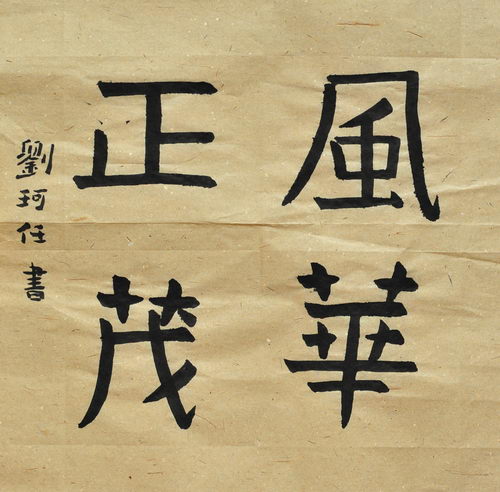 風華
正茂
劉珂任書